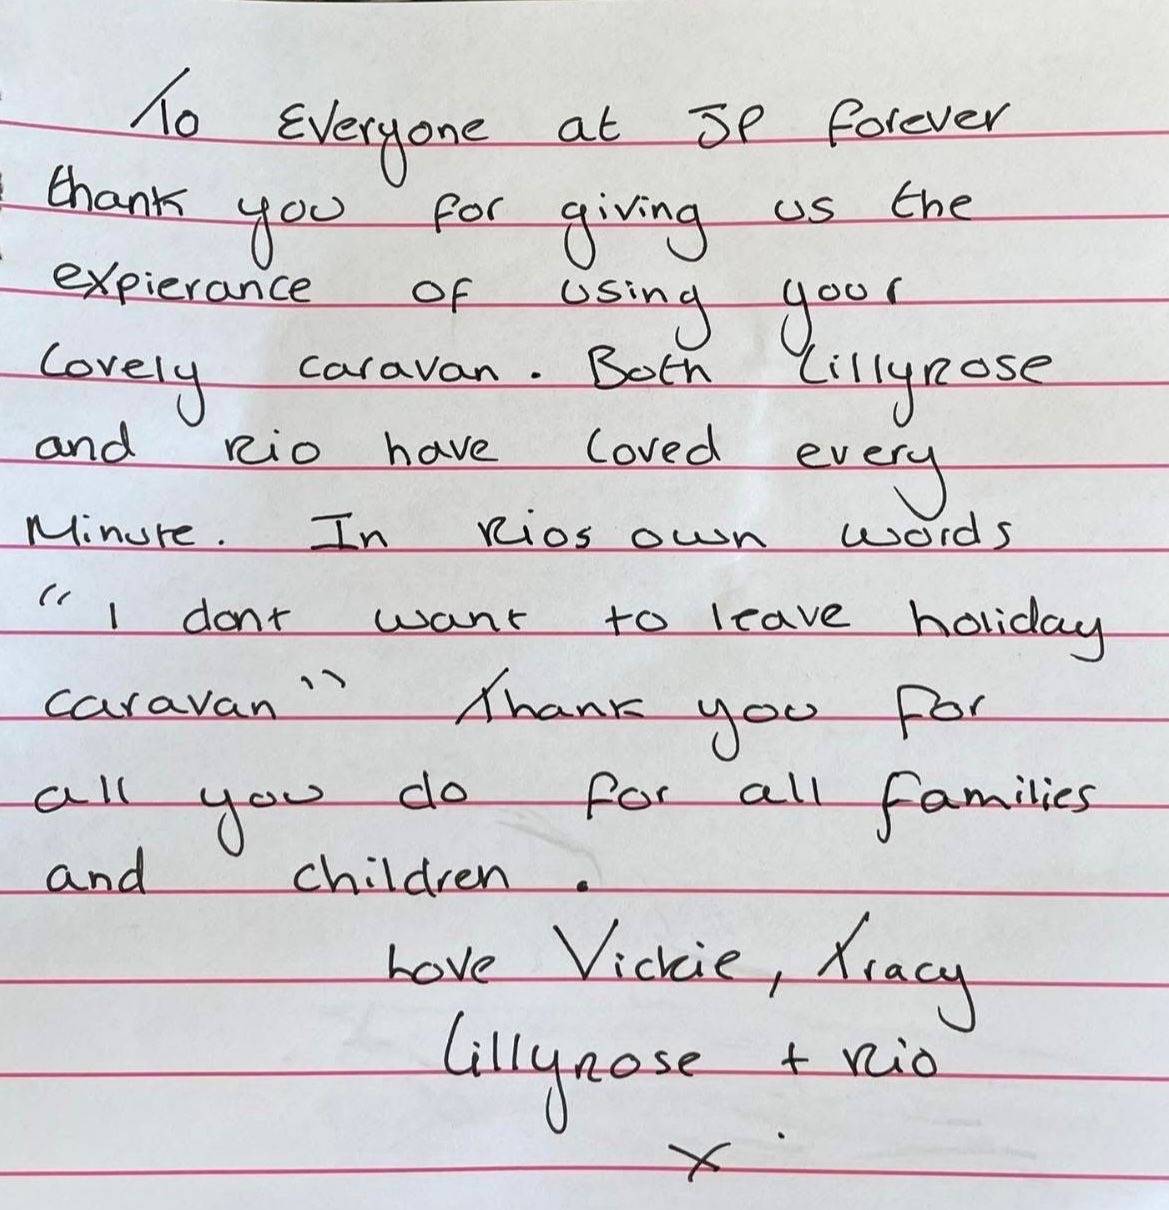 To Everyone at JP forever
thank you for giving us the
expierance of using your
lovely caravan. Both Lillyrose
and Rio have loved every
Minute. In Rios own words
"I dont want to leave holiday
caravan" Thank you for
all you do for all families
and children.
Love Vickie, Tracy
Lillyrose + Rio
x